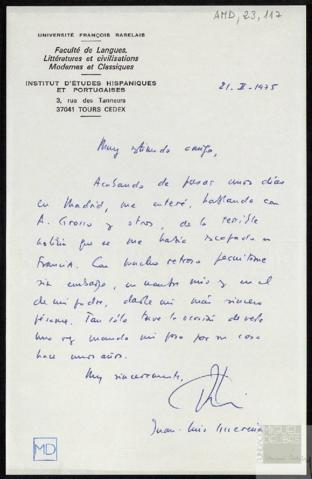 AMD, 23, 117
UNIVERSITÉ FRANÇOIS RABELAIS
Faculté de Langues,
Littératures et civilisations
Modernes et Classiques
INSTITUT D'ÉTUDES HISPANIQUES
ET PORTUGAISES
3, rue des Tanneurs
37041 TOURS CEDEX
21. II - 1975
Muy estimado amigo,
Acabando de pasar unos días
en Madrid, me enteré, hablando con
A. Grosso y otros, de la terrible
noticia que se me había escapado en
Francia. Con mucho retraso permítame
sin embargo, en nombre mío y en el
de mi padre, darle mi más sincero
pésame. Tan sólo tuve la ocasión de verla
una vez cuando mi paso por su casa
hace unos años.
Muy sinceramente,
Juan-Luis
MD
MIGUEL
DELIBES